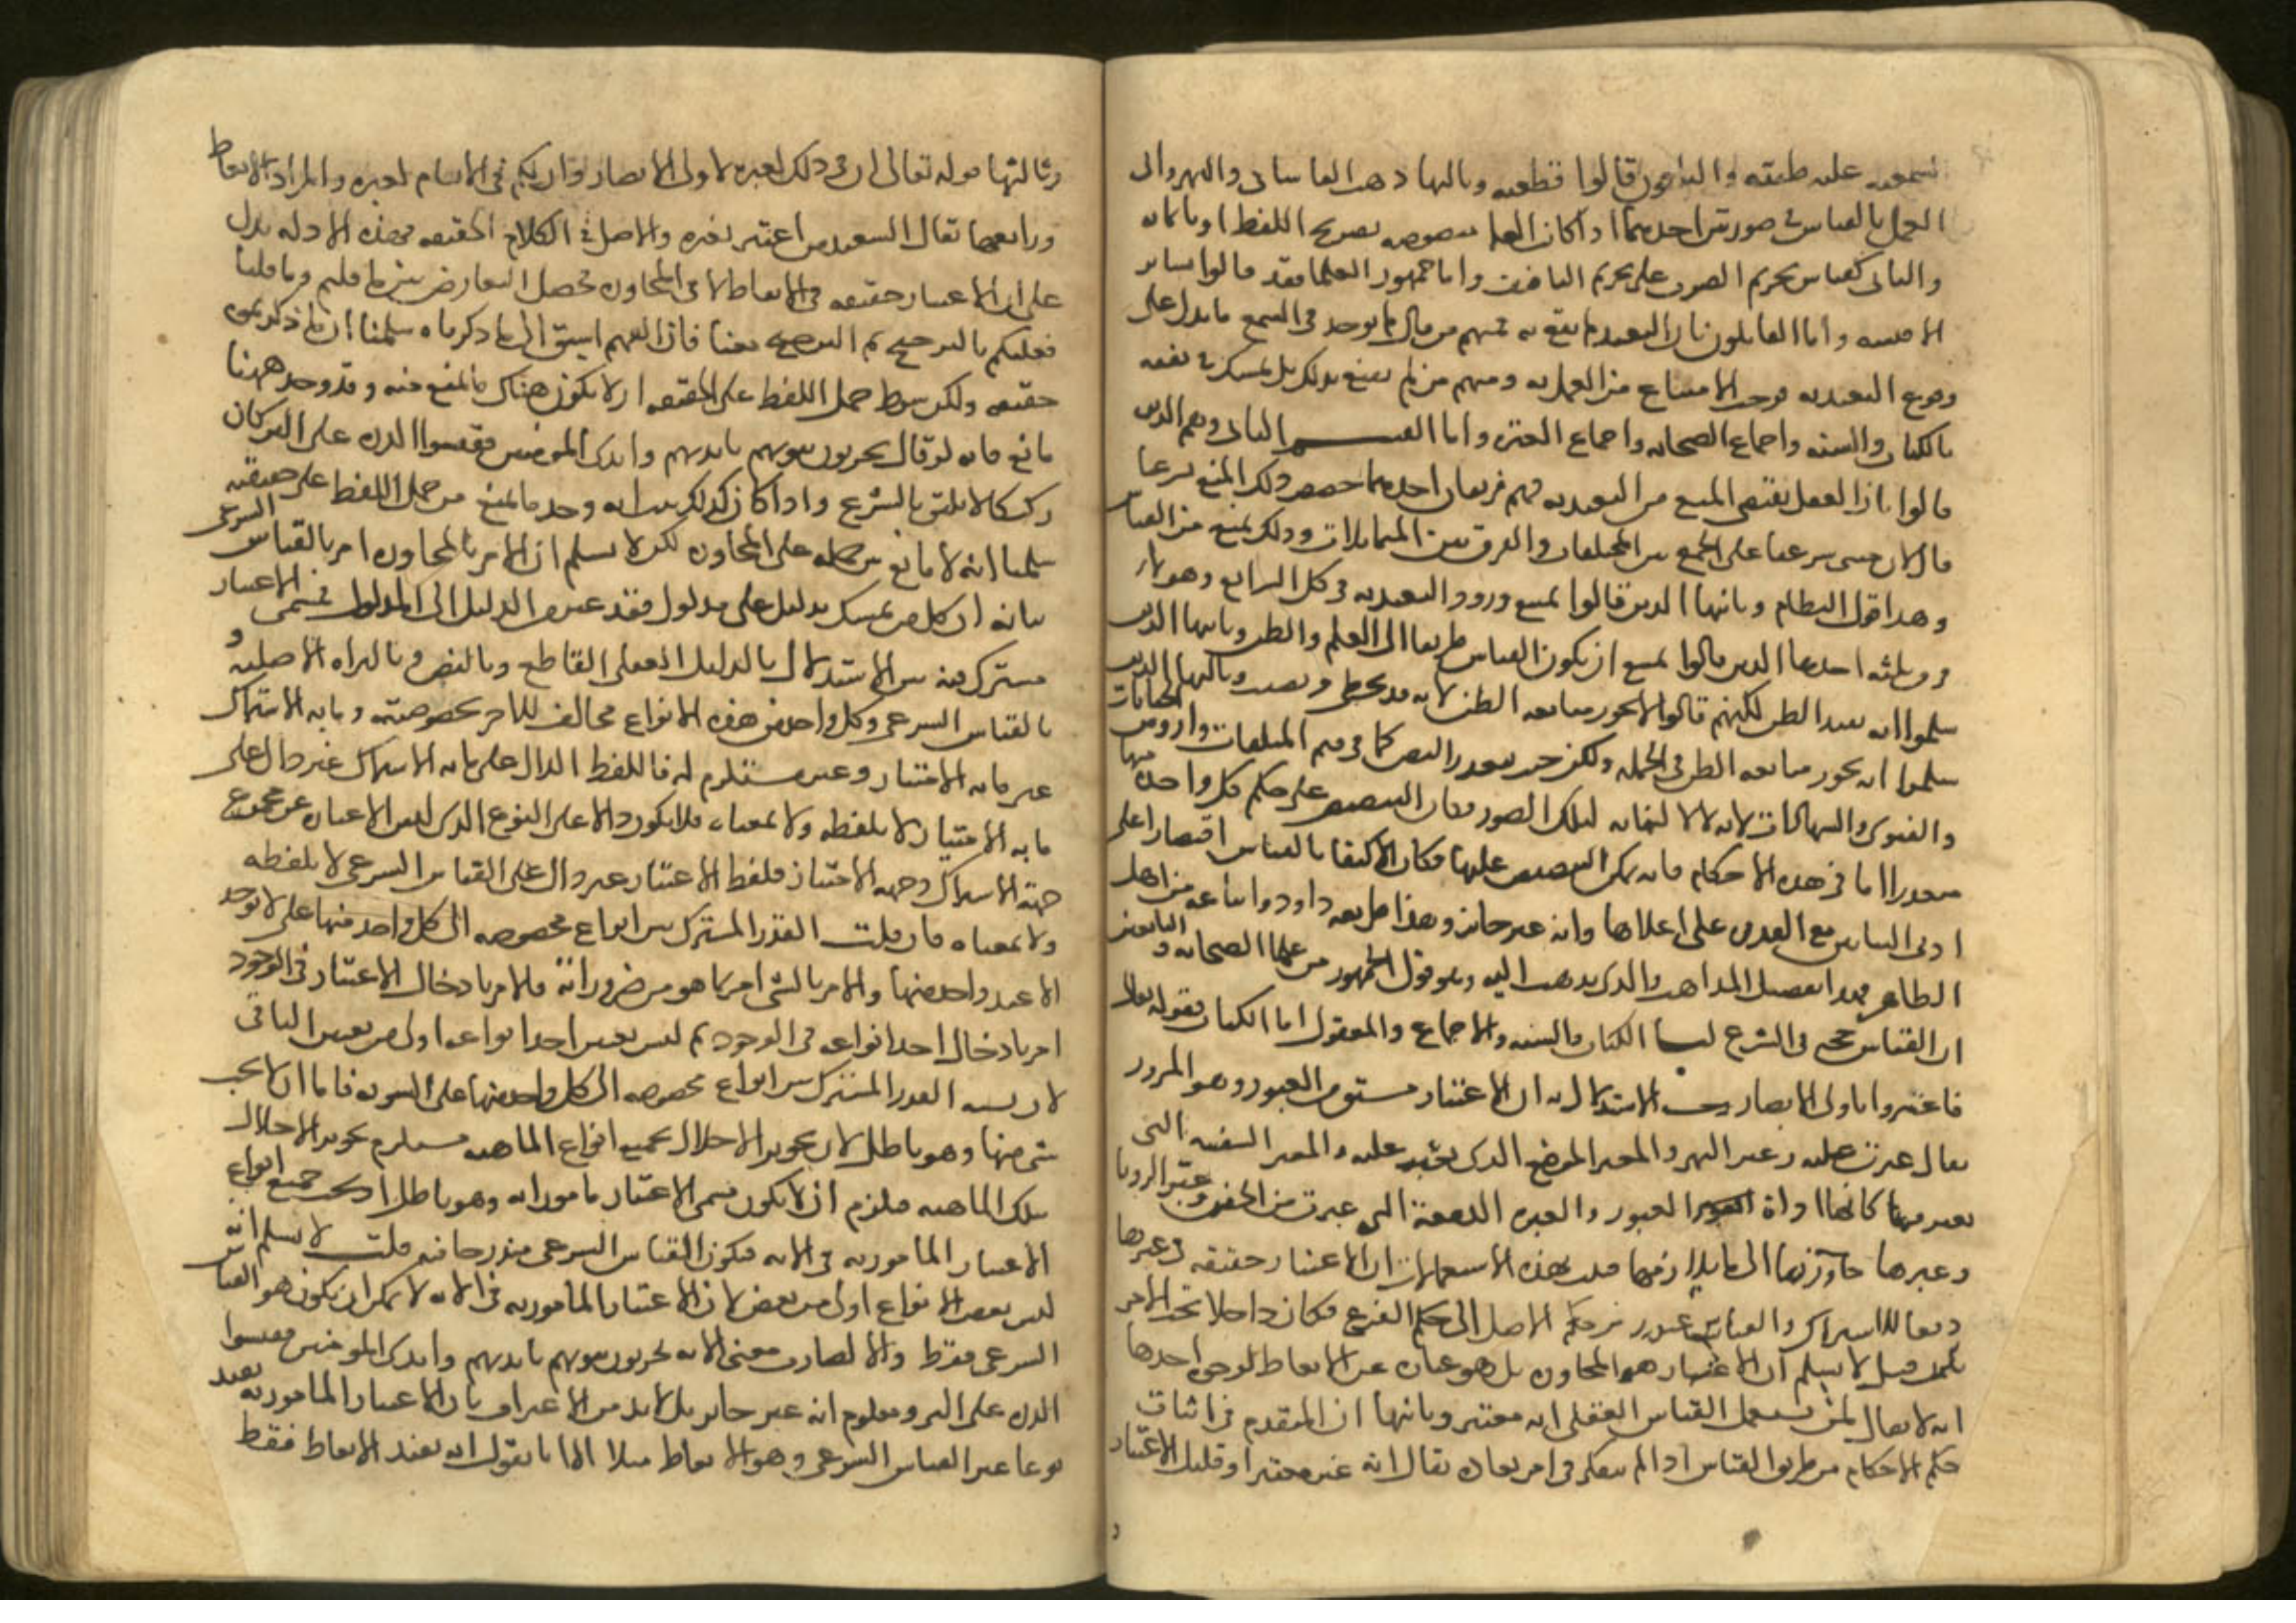 السمعيه عليه ظنيه والباقون قالوا قطعيه وثالثها ذهب القاساني والنهرواني الى
العمل بالقياس في صورتين احديهما اذا كانت العله منصوصه بصريح اللفظ او بايمائه
والثاني كقياس تحريم الضرب على تحريم التافيف واما جمهور العلما فقد قالوا بساير
الاقيسه واما القايلون بان التعبد لم يقع به فمنهم من قال لم يوجد في السمع ما يدل على
وقوع التعبد به فوجب الامتناع من العمل به ومنهم من لم يقنع بذلك بل تمسك في نفيه
بالكتاب والسنه واجماع الصحابه واجماع العتره واما القسم الثاني وهم الذين
قالوا بان العقل يقتضي المنع من التعبد به فهم فريقان احدهما خصص ذلك المنع بشرعنا
قال لان مبنى شرعنا على الجمع بين المختلفات والفرق بين المتماثلات وذلك يمنع من القياس
وهذا قول النظام وثانيها الذين قالوا يمتنع ورود التعبد به في كل الشرايع وهولاء
فرق ثلثه احدها الذين قالوا يمتنع ان يكون القياس طريقا الى العلم والظن وثانيها الذين
سلموا انه يفيد الظن لكنهم قالوا لا يجوز متابعه الظن لانه قد يخطي ويصيب وثالثها الذين
سلموا انه يجوز متابعه الظن في الجمله ولكن حيث يتعذر النص كما في قيم المتلفات واروش الجنايات
والفتوى والشهادات لانه لا نهايه لتلك الصور فكان التنصيص على حكم كل واحده منها
متعذرا اما في هذه الاحكام فانه يمكن التنصيص عليها فكان الاكتفا بالقياس اقتصارا على
ادنى البيانين مع القدره على اعلاها وانه غير جائز وهذا طريقه داود واتباعه من اهل
الظاهر فهذا تفصيل المذاهب والذي يذهب اليه وهو قول الجمهور من علما الصحابه والتابعين
ان القياس حجه في الشرع لنا الكتاب والسنه والاجماع والمعقول اما الكتاب فقوله تعالى
فاعتبروا يا اولي الابصار وجه الاستدلال به ان الاعتبار مشتق من العبور وهو المرور
يقال عبرت عليه وعبر النهر والمعبر الموضع الذي يعبر عليه والمعبر السفينه التي
يعبر فيها كانها اداة العبور والعبره الدمعة التي عبرت من الجفن وعبر الرويا
وعبرها جاوزها الى ما يلازمها فثبت بهذه الاستعمالات ان الاعتبار حقيقه في غيرها
دفعا للاشتراك والقياس عبور من حكم الاصل الى حكم الفرع فكان داخلا تحت الامر
فان قيل لا نسلم ان الاعتبار هو المجاوزه بل هو عباره عن الاتعاظ لوجوه احدها
انه لا يقال لمن يستعمل القياس العقلي انه معتبر وثانيها ان المتقدم في اثبات
حكم الاحكام من طريق القياس اذا لم يتفكر في امر معاده يقال انه غير معتبر او قليل الاعتبار
وثالثها قوله تعالى ان في ذلك لعبره لاولي الابصار وان لكم في الانعام لعبره والمراد الاتعاظ
ورابعها يقال السعيد من اعتبر بغيره والاصل في الكلام الحقيقه فهذه الادله تدل
على ان الاعتبار حقيقه في الاتعاظ لا في المجاوزه فحصل التعارض بين ما قلتم وما قلنا
فعليكم بالترجيح ثم الترجيح معنا فان الفهم اسبق الى ما ذكرناه سلمنا ان ما ذكرتموه
حقيقه ولكن شرط حمل اللفظ على الحقيقه ان لا يكون هناك ما يمنع منه وقد وجد ههنا
مانع فانه لو قال يخربون بيوتهم بايديهم وايدي المومنين فقيسوا الذره على البر كان
ركيكا لا يليق بالشرع واذا كان كذلك ثبت انه وجد ما يمنع من حمل اللفظ على حقيقته
سلمنا انه لا مانع من حمله على المجاوزه لكن لا نسلم ان الامر بالمجاوزه امر بالقياس الشرعي
بيانه ان كل من تمسك بدليل على مدلول فقد عبر من الدليل الى المدلول فمسمى الاعتبار
مشترك فيه بين الاستدلال بالدليل العقلي القاطع وبالنص وبالبراه الاصليه و
بالقياس الشرعي وكل واحد من هذه الانواع مخالف للاخر بخصوصيته وما به الاشتراك
غير ما به الامتياز وغير مستلزم له فاللفظ الدال على ما به الاشتراك غير دال على
ما به الامتياز لا بلفظه ولا بمعناه فلا يكون دالا على النوع الذي ليس الا عباره عن مجموع
جهه الاشتراك وجهه الامتياز فلفظ الاعتبار غير دال على القياس الشرعي لا بلفظه
ولا بمعناه فان قلت القدر المشترك بين انواع مخصوصه الى كل واحد منها على لا يوجد
الا عند واحد منها والامر بالشي امر بما هو من ضروراته فالامر بادخال الاعتبار في الوجود
امر بادخال احد انواعه في الوجود ثم ليس تعيين احد انواعه اولى من تعيين الباقي
لان نسبه القدر المشترك بين انواع مخصوصه الى كل واحد منها على السويه فاما ان لا يجب
شي منها وهو باطل لان تجويز الاخلال بجميع انواع الماهيه مستلزم تجويز الاخلال
بتلك الماهيه فيلزم ان لا يكون مسمى الاعتبار مامورا به وهو باطل او يجب جميع انواع
الاعتبار المامور به في الايه فيكون القياس الشرعي مندرجا فيه قلت لا نسلم انه
ليس بعض الانواع اولى من بعض لان الاعتبار المامور به في الايه لا يمكن ان يكون هو القياس
الشرعي فقط والا لصارت معنى الايه يخربون بيوتهم بايديهم وايدي المومنين فقيسوا
الذره على البر ومعلوم انه غير جائز بل لا بد من الاعتراف بان الاعتبار المامور به يفيد
نوعا غير القياس الشرعي وهو الاتعاظ مثلا الا انا نقول انه يفيد الاتعاظ فقط